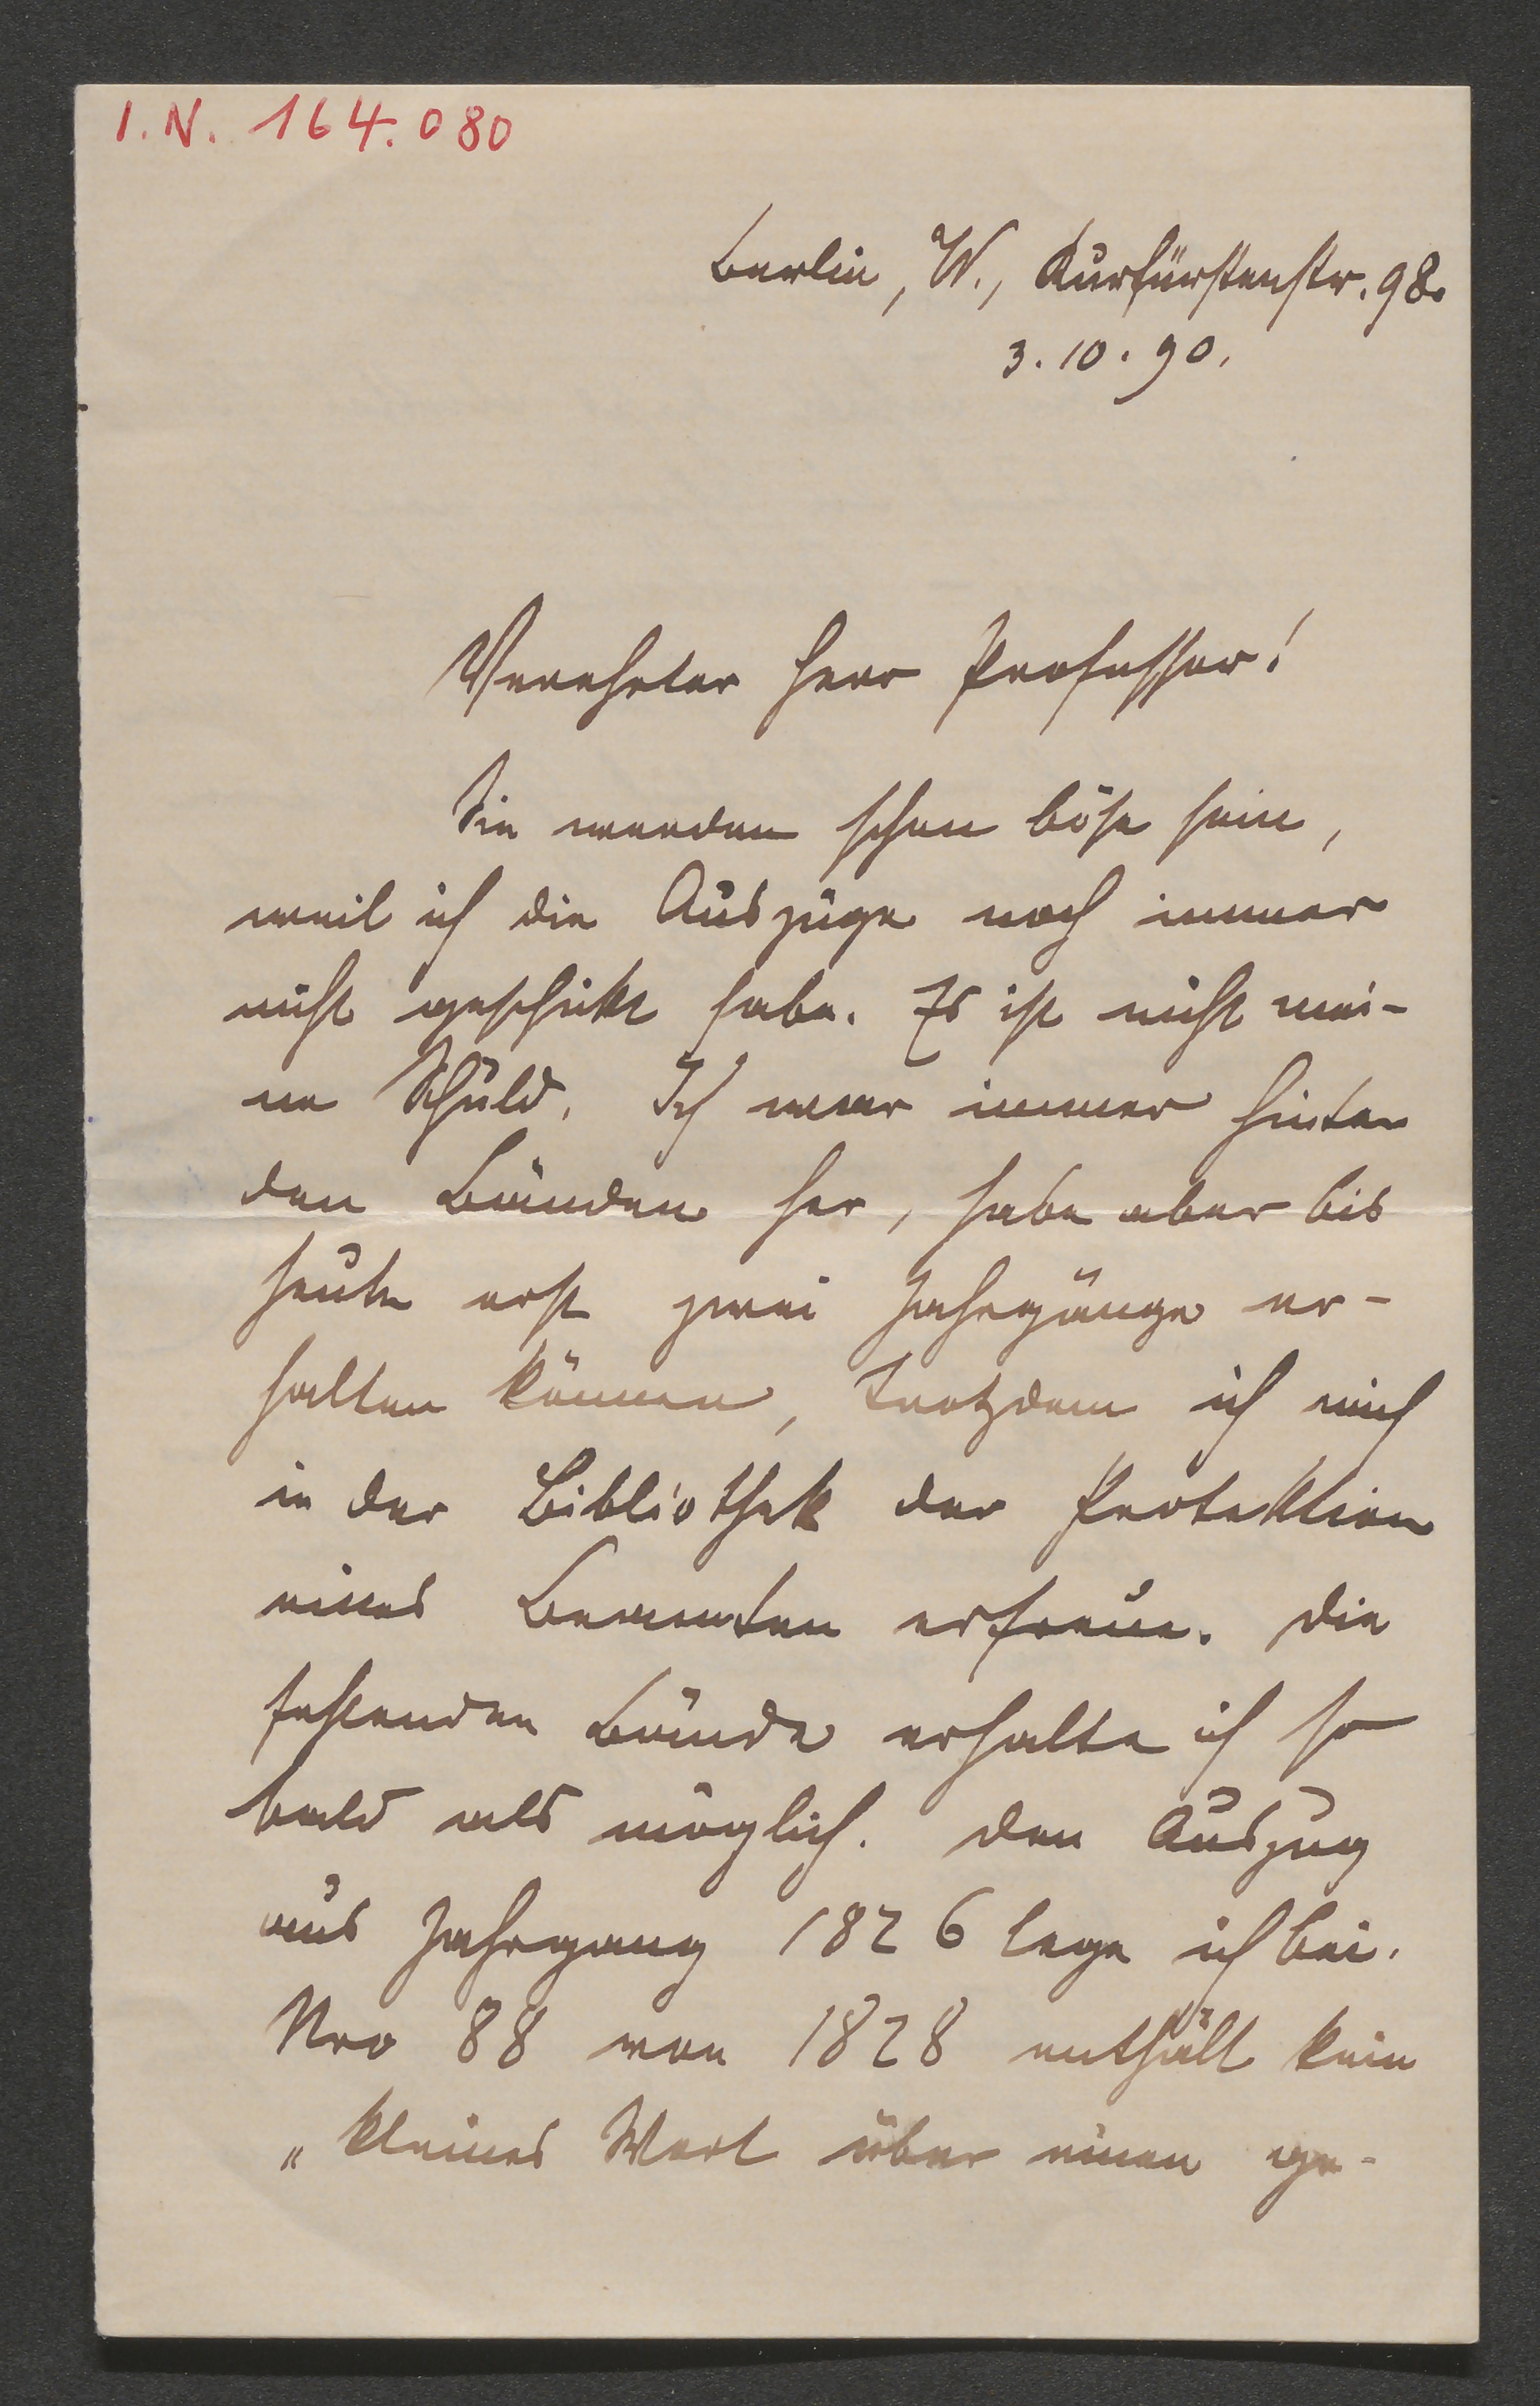 I. N. 164.080
Berlin, W., Kurfürstenstr. 98.
3. 10. 90.
Verehrter Herr Professor!
Sie werden schon böse sein,
weil ich die Auszüge noch immer
nicht geschikt habe. Es ist nicht mei-
ne Schuld. Ich war immer hinter
den Bänden her, habe aber bis
heute erst zwei Jahrgänge er-
halten können, trotzdem ich mich
in der Bibliothek der Protektion
eines Beamten erfreue. Die
fehlenden Bände erhalte ich so
bald als möglich. Den Auszug
aus Jahrgang 1826 lege ich bei.
Nro 88 von 1828 enthält kein
„kleines Wort über einen ge-